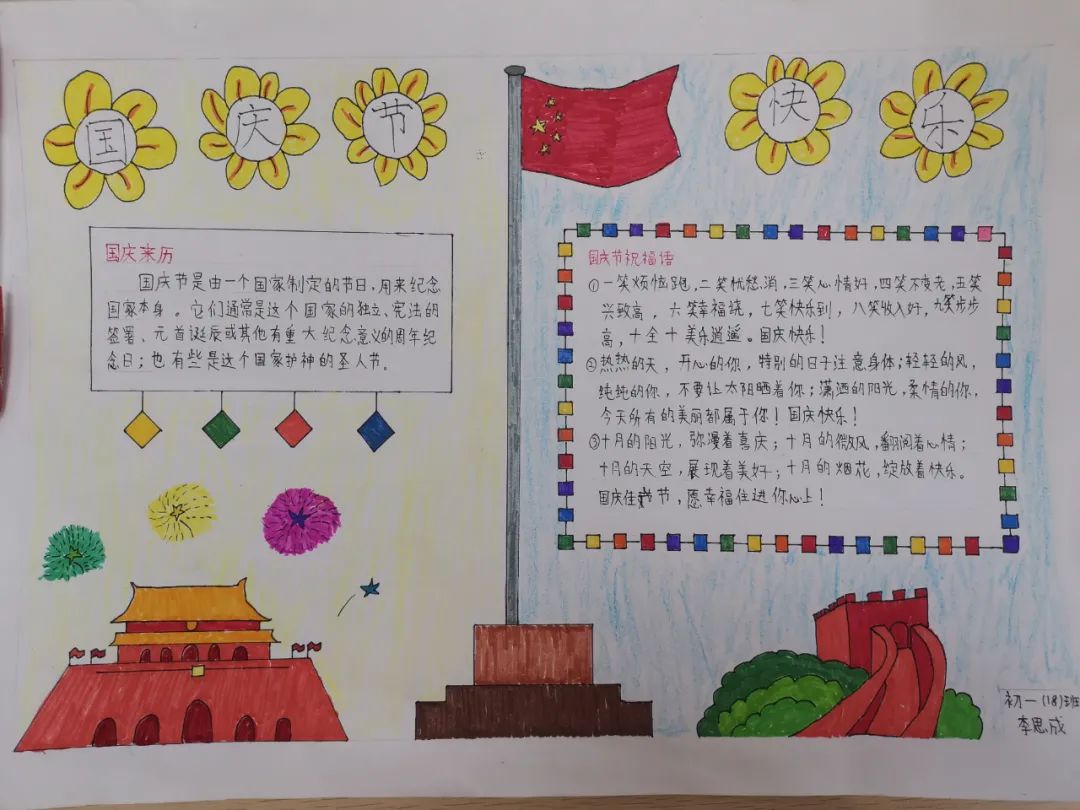 国庆节快乐
国庆来历
国庆节是由一个国家制定的节日,用来纪念
国家本身。它们通常是这个国家的独立、宪法的
签署、元首诞辰或其他有重大纪念意义的周年纪
念日;也有些是这个国家护神的圣人节。
国庆节祝福语
①一笑烦恼跑,二笑忧愁消,三笑心情好,四笑不变老,五笑
兴致高,六笑幸福绕,七笑快乐到,八笑收入好,九笑步步
高,十全十美乐逍遥。国庆快乐!
②热热的天,开心的你,特别的日子注意身体;轻轻的风,
纯纯的你,不要让太阳晒着你;潇洒的阳光,柔情的你,
今天所有的美丽都属于你!国庆快乐!
③十月的阳光,弥漫着喜庆;十月的微风,翻阅着心情;
十月的天空,展现着美好;十月的烟花,绽放着快乐。
国庆佳节,愿幸福住进你心上!
初一(18)班
李思成